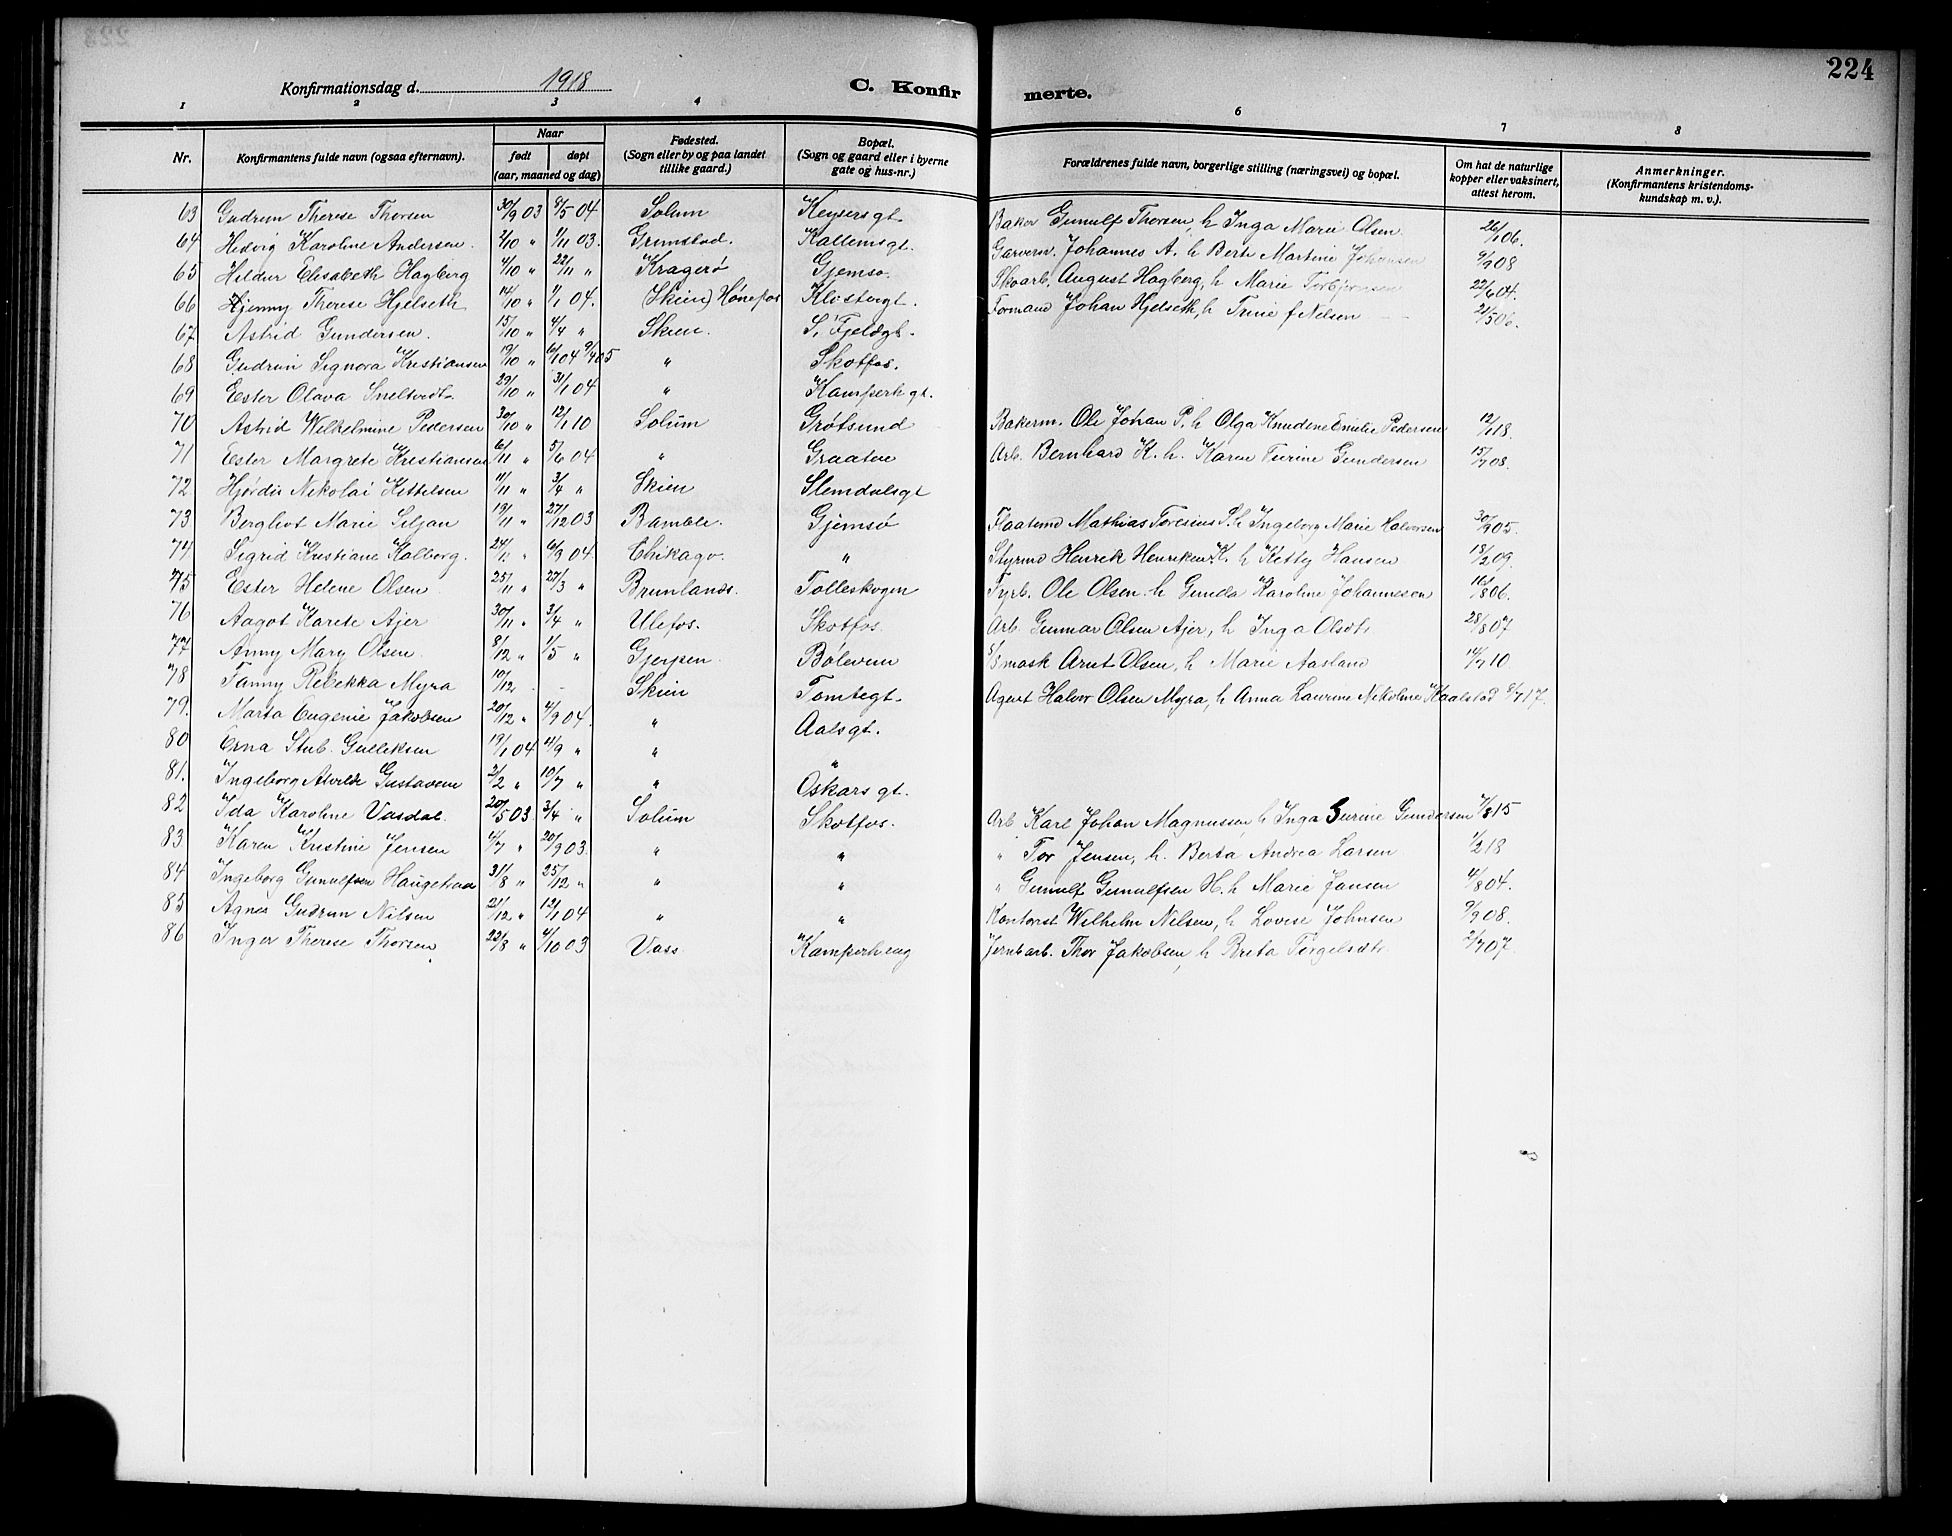 224
Konfirmationsdag d. 1918 C. Konfirmerte.
1 2 3 4 6 7 8
Nr. Konfirmantens fulde navn (ogsaa efternavn). Naar født døpt (aar, maaned og dag) Fødested. (Sogn eller by og paa landet tillike gaard.) Bopæl. (Sogn og gaard eller i byerne gate og hus-nr.) Forældrenes fulde navn, borgerlige stilling (næringsvei) og bopæl. Om hat de naturlige kopper eller vaksinert, attest herom. Anmerkninger. (Konfirmantens kristendoms-kundskap m. v.).
63 Gudrun Therese Thorsen 30/9 03 8/5 04 Solum Keysersgt. Baker Gunulf Thorsen, h Inga Marie Olsen 26/1 06.
64 Hedvig Karoline Andersen. 2/10 " 1/11 03. Grimstad. Kallemsgt. Garverm. Johannes A. h Berte Martine Johansen 9/9 08
65 Heldur Elisabeth Hagberg 4/10 " 22/11 " Kragerø Gjemsø. Skoarb. August Hagberg, h Marie Torbjørnsen 22/6 04.
66 Hjenny Therese Hjelseth 14/10 " 1/1 04. (Skien) Hønefos Klostergt. Formand Johan Hjelseth, h Trine f Nelsen 21/5 06.
67 Astrid Gundersen. 15/10 " 4/4 " Skien. S. Fjeldgt.
68 Gudrun Signora Kristiansen 19/10 " 6/1 04 9/4 05 " Skotfos.
69 Ester Olava Sneltvedt 29/10 " 31/1 04. " Kamperhgt.
70 Astrid Wilhelmine Pedersen 30/10 " 12/1 10 Solum Grøtsund Bakerm. Ole Johan P. h Olga Knudene Emelie Pedersen 12/1 18.
71 Ester Margrete Kristiansen 6/11 " 5/6 04 " Graaten Arb. Bernhard K. h. Karen Turine Gundersen 15/7 08.
72 Hjørdis Nikolai Kittelsen 11/11 " 3/4 " Skien Slemdalsgt
73 Bergliot Marie Siljan 19/11 " 27/12 03 Bamble. Gjemsø Flaatemd Mathias Toresius S. h Ingeborg Marie Halvorsen 30/9 05.
74 Sigrid Kristiane Kalberg. 24/11 " 6/9 04. Chikago. " Styrmd Henrek Henriksen K. h Ketty Hansen 18/2 09.
75 Ester Helene Olsen 25/11 " 27/3 " Brunlands. Tolleskogen Fyrb. Ole Olsen. h Gunda Karoline Johannesen 16/8 06.
76 Aagot Karete Ajer 30/11 " 3/4 " Ulefos. Skotfos. Arb. Gunnar Olsen Ajer, h Inga Olsdt. 28/8 07
77 Anny Mary Olsen. 8/12 " 1/5 " Gjerpen. Bøleveien S/S mask Arnt Olsen, h Marie Aasland 14/7 10.
78 Fanny Rebekka Myra 10/12 . - Skien Tomtegt. Agent Halvor Olsen Myra, h Anna Laurine Nekoline Kaalstad 8/7 17.
79. Marta Eugenie Jakobsen 20/12 " 4/9 04. " Aalsgt.
80 Erna Stub. Gulleksen 19/1 04 11/9 " " "
81. Ingeborg Alvilde Gustavsen 2/2 " 10/7 " " Oskarsgt.
82 Ida Karoline Vasdal. 20/5 03. 3/4 " Solum Skotfos. Arb Karl Johan Magnussen, h Inga Surine Gundersen 7/8 15
83. Karen Kristine Jensen 4/7 " 20/9 03. " " " Tor Jensen, h. Berta Andrea Larsen 1/2 18
84 Ingeborg Gunulfsen Haugetraa 31/8 " 25/12 " " " " Gunulf Gunulfsen H. h Marie Jansen 4/8 04.
85 Agnes Gudrun Nilsen 21/12 " 12/1 04 " " Kontorist Wilhelm Nilsen, h Lovise Johnsen 9/9 08.
86 Inger Therese Thorsen 23/8 " 4/10 03 Vass. Kamperhaug Jernbarb. Thor Jakobsen, h Breta Torgelsdt. 2/7 07.